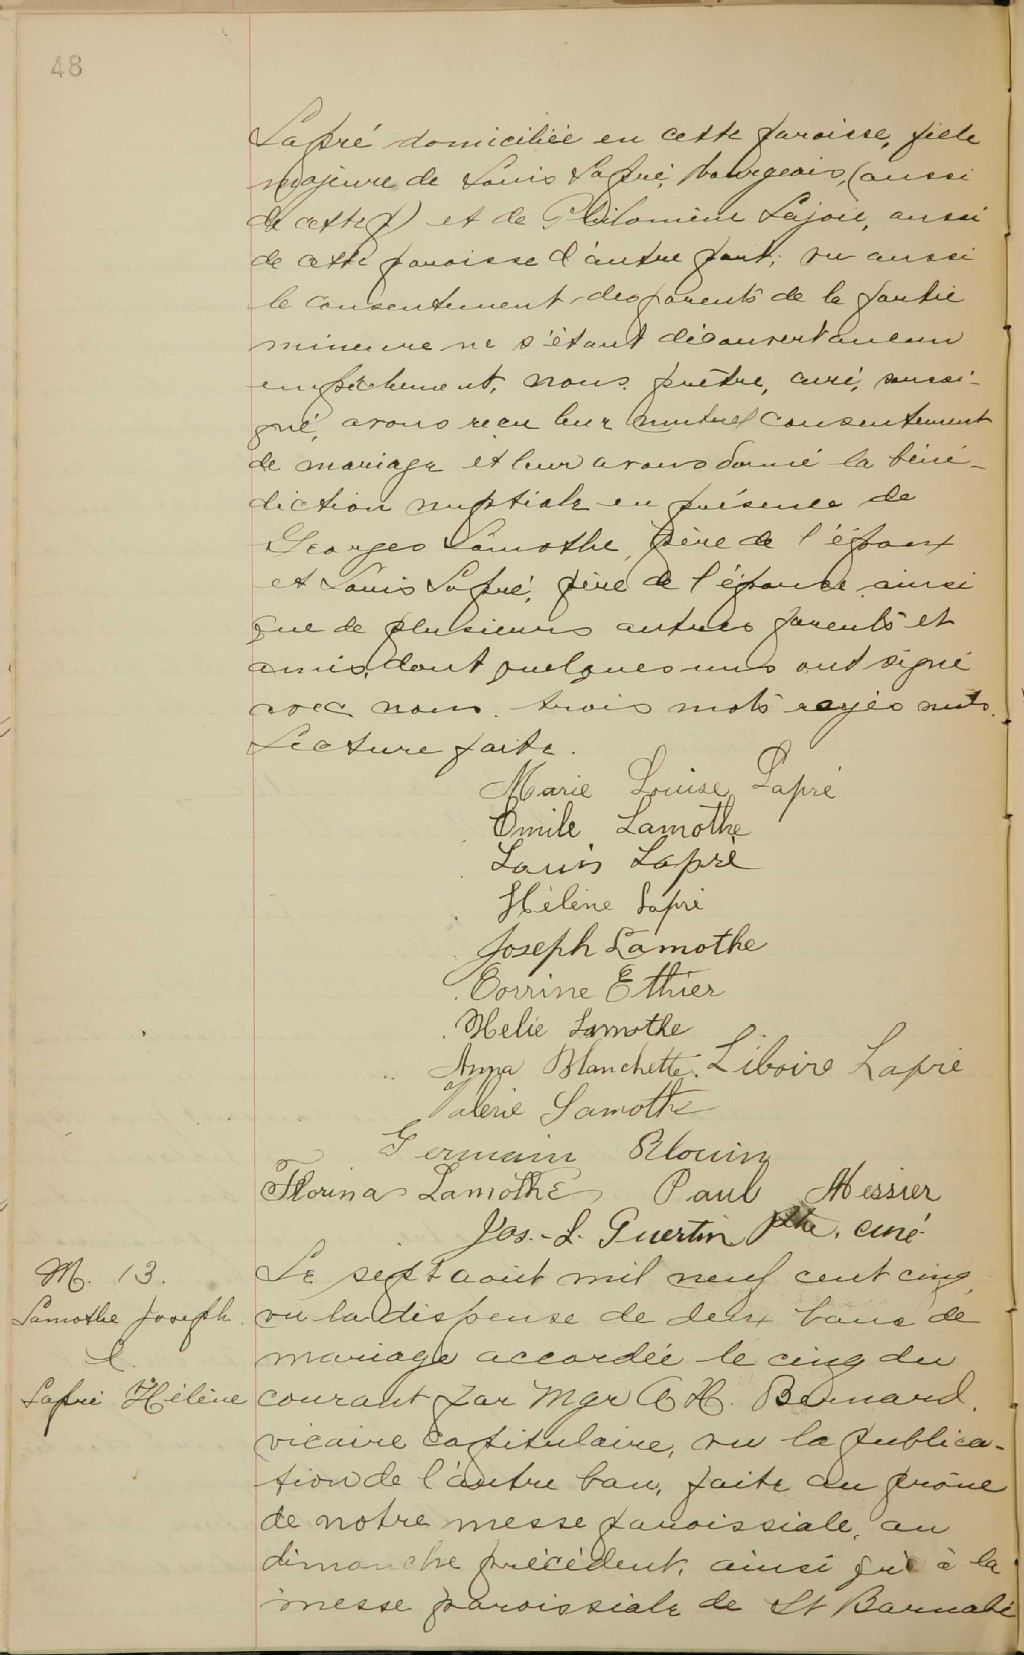 48
Lapré domiciliée en cette paroisse, fille
majeure de Louis Lapré, bourgeois, (aussi
de cette p) et de Philomène Lajoie, aussi
de cette paroisse d'autre part; vu aussi
le consentement des parents de la partie
mineure ne s'étant découvert aucun
empêchement, nous, prêtre, curé, soussi-
gné, avons reçu leur mutuel consentement
de mariage et leur avons donné la béné-
diction nuptiale en présence de
Georges Lamothe, père de l'époux
et Louis Lapré, père de l'épouse ainsi
que de plusieurs autres parents et
amis, dont quelques uns ont signé
avec nous. trois mots rayés nuls.
Lecture faite.
Marie Louise Lapré
Emile Lamothe
Louis Lapré
Hélène Lapré
Joseph Lamothe
Corrine Ethier
Melie Lamothe
Anna Blanchette. Liboire Lapré
Valérie Lamothe
Germain Blouin
Florina Lamothe Paul Messier
Jos.-L. Guertin ptre, curé
M. 13.
Lamothe Joseph
&
Lapré Hélène
Le sept août mil neuf cent cinq,
vu la dispense de deux bans de
mariage accordée le cinq du
courant par Mgr A H. Bernard,
vicaire capitulaire, vu la publica-
tion de l'autre ban, faite au prône
de notre messe paroissiale, au
dimanche précédent, ainsi qu'à la
messe paroissiale de St Barnabé